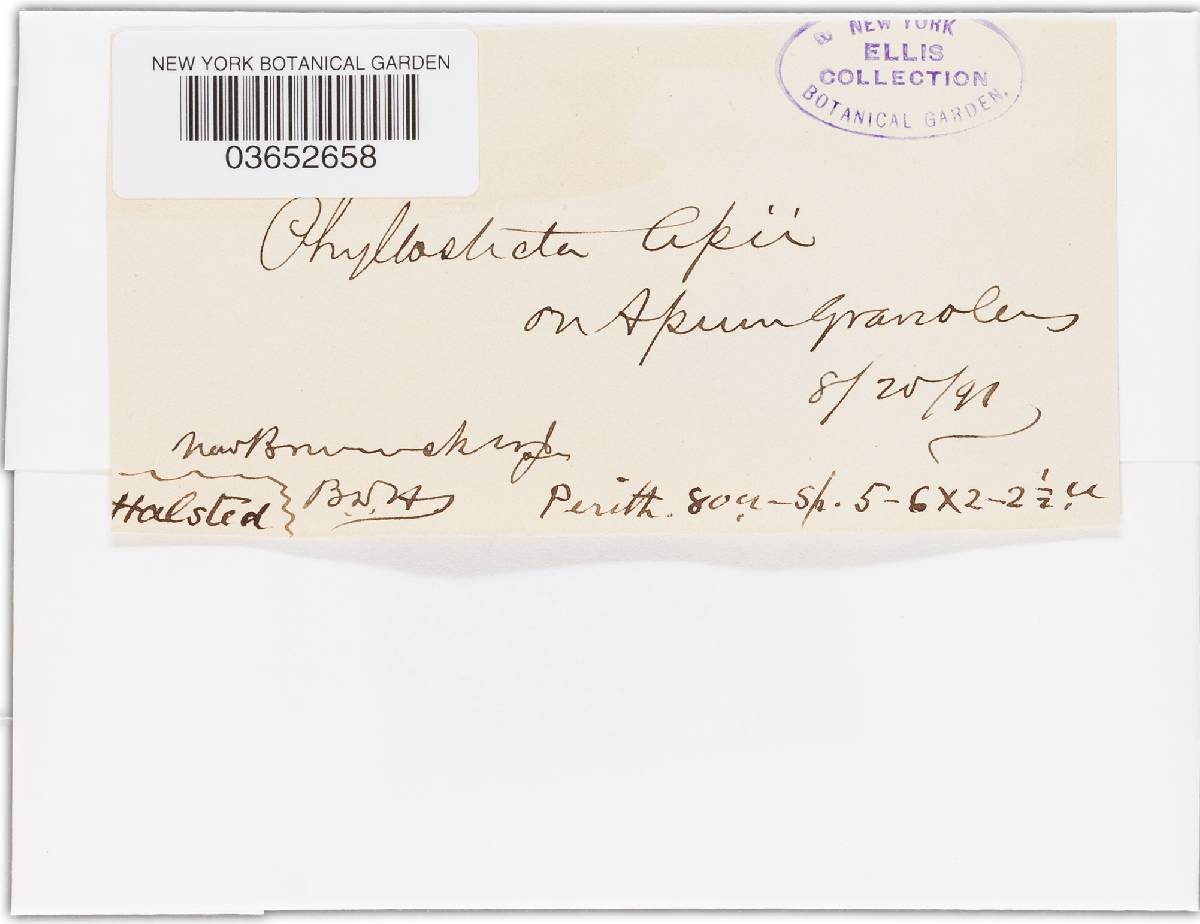 NEW YORK BOTANICAL GARDEN
03652658
& NEW YORK
ELLIS
COLLECTION
BOTANICAL GARDEN.
Phyllosticta Apii
on Apium Graveolens
8/20/91
New Brunswick N.J.
Halsted } B.D.H.
Perith. 80 µ - sp. 5-6 X 2-2½ µ